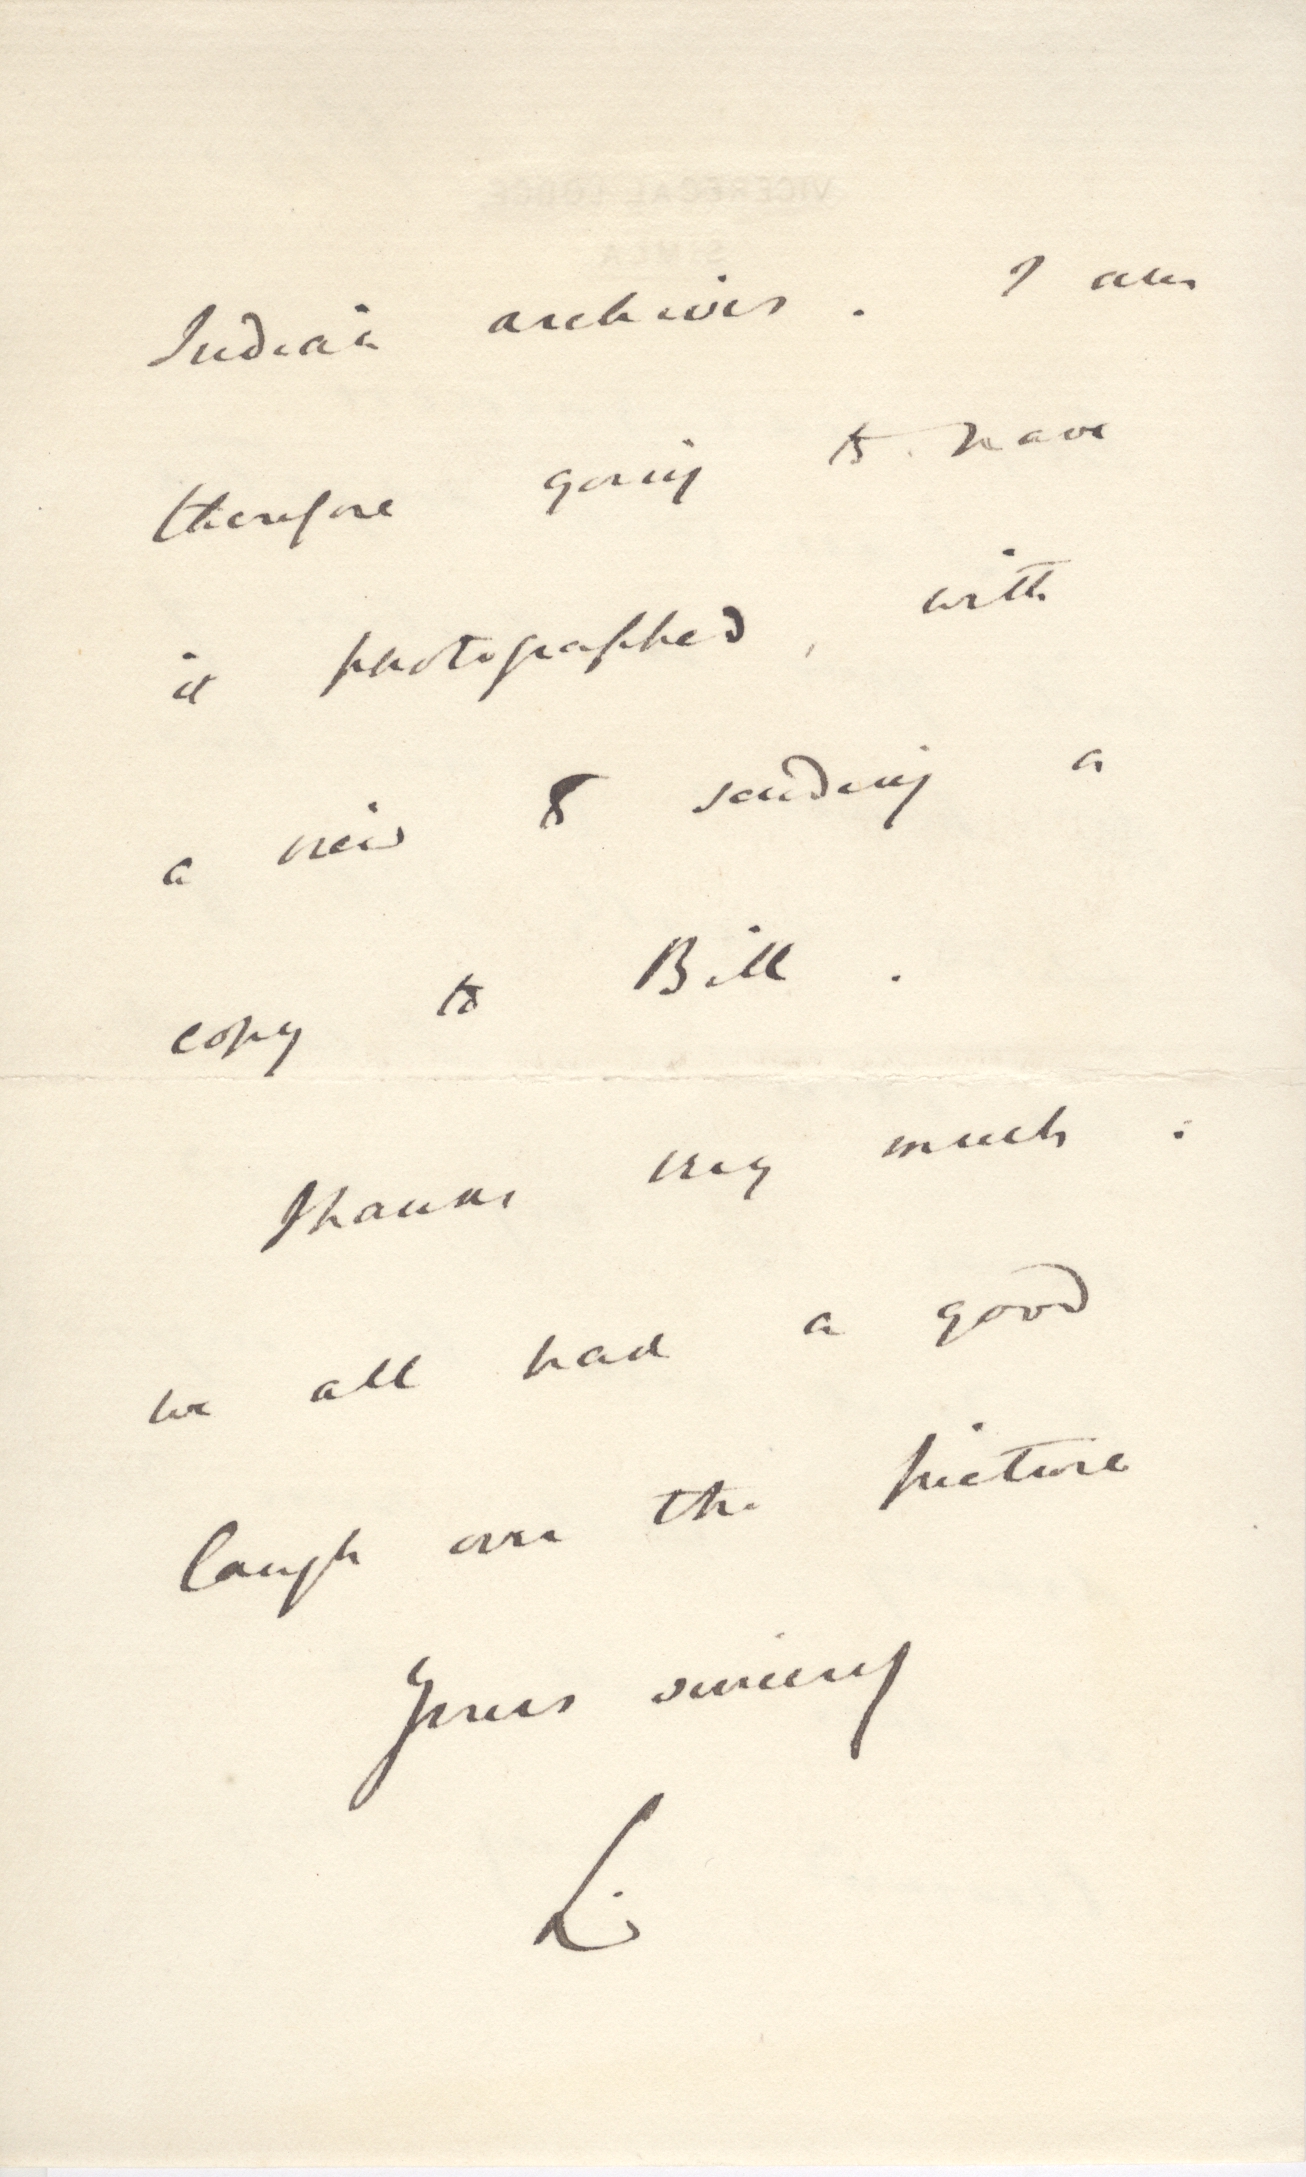 VICEREGAL LODGE,
SIMLA
Indian archives. I am
therefore going to have
it photographed, with
a view to sending a
copy to Bill.
Thanks very much:
we all had a good
laugh over the picture
Yours sincerely
L.